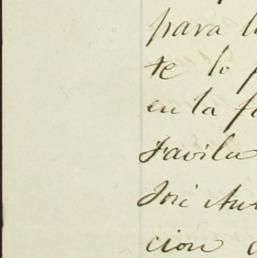 para l
te lo p
en la f
Favila
José An
cion